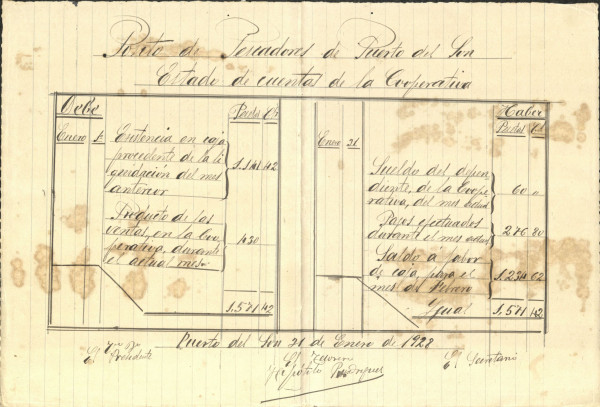 Posito de Pescadores de Puerto del Son
Estado de cuentas de la Cooperativa
Debe
Pesetas Cts
Enero 1º Existencia en caja
procedente de la li
quidación del mes
anterior 1.141 42
Producto de las
ventas, en la Coo
perativa, durante
el actual mes 430
1.571 42
Haber
Pesetas Cts
Enero 31
Sueldo del depen
diente, de la Coope
rativa, del mes actual 60 "
Pagos efectuados
durante el mes actual 276 80
Saldo a favor
de caja, para el
mes de Febrero 1.234 62
Igual 1.571 42
Puerto del Son 31 de Enero de 1928
El Presidente
El Tesorero
Hipólito Rodriguez
El Secretario